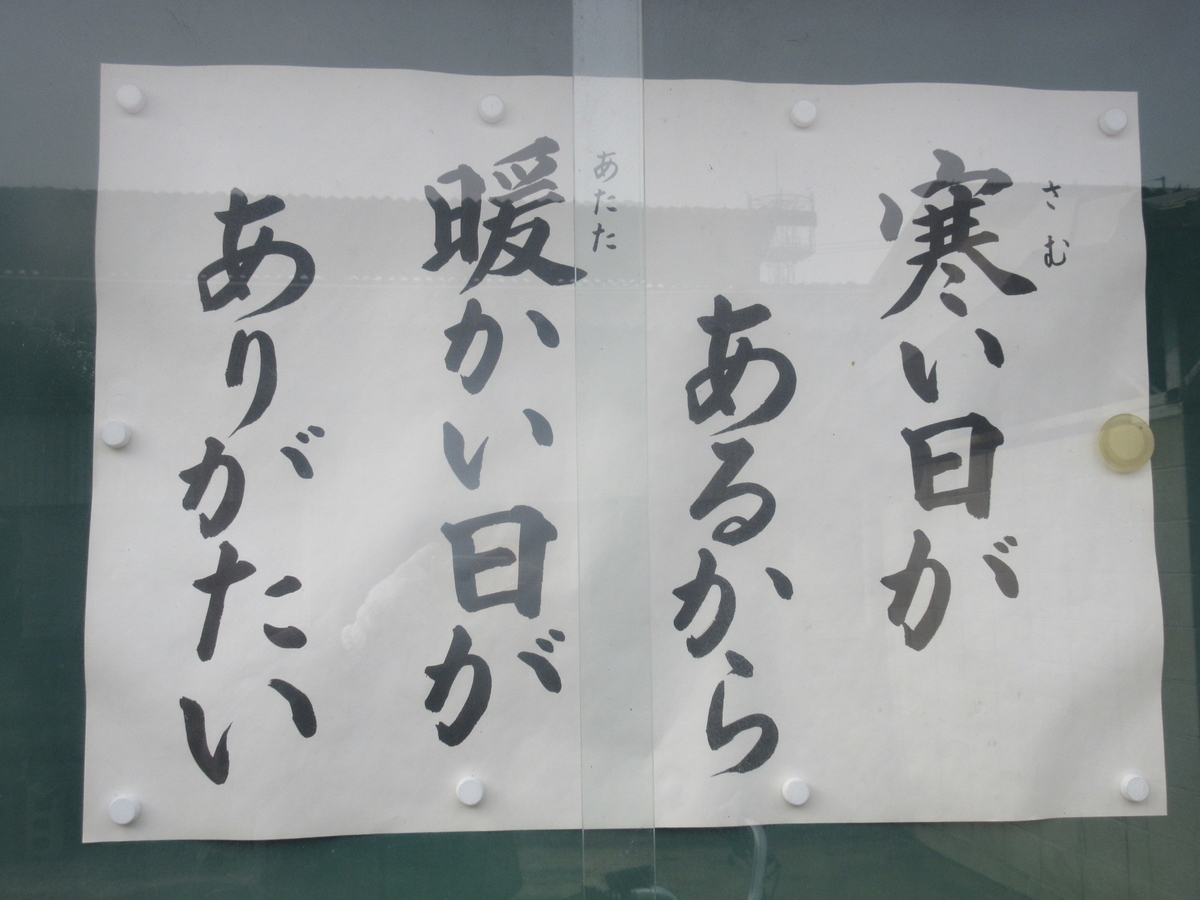 寒い日が
さむ
あるから
暖かい日が
あたた
ありがたい